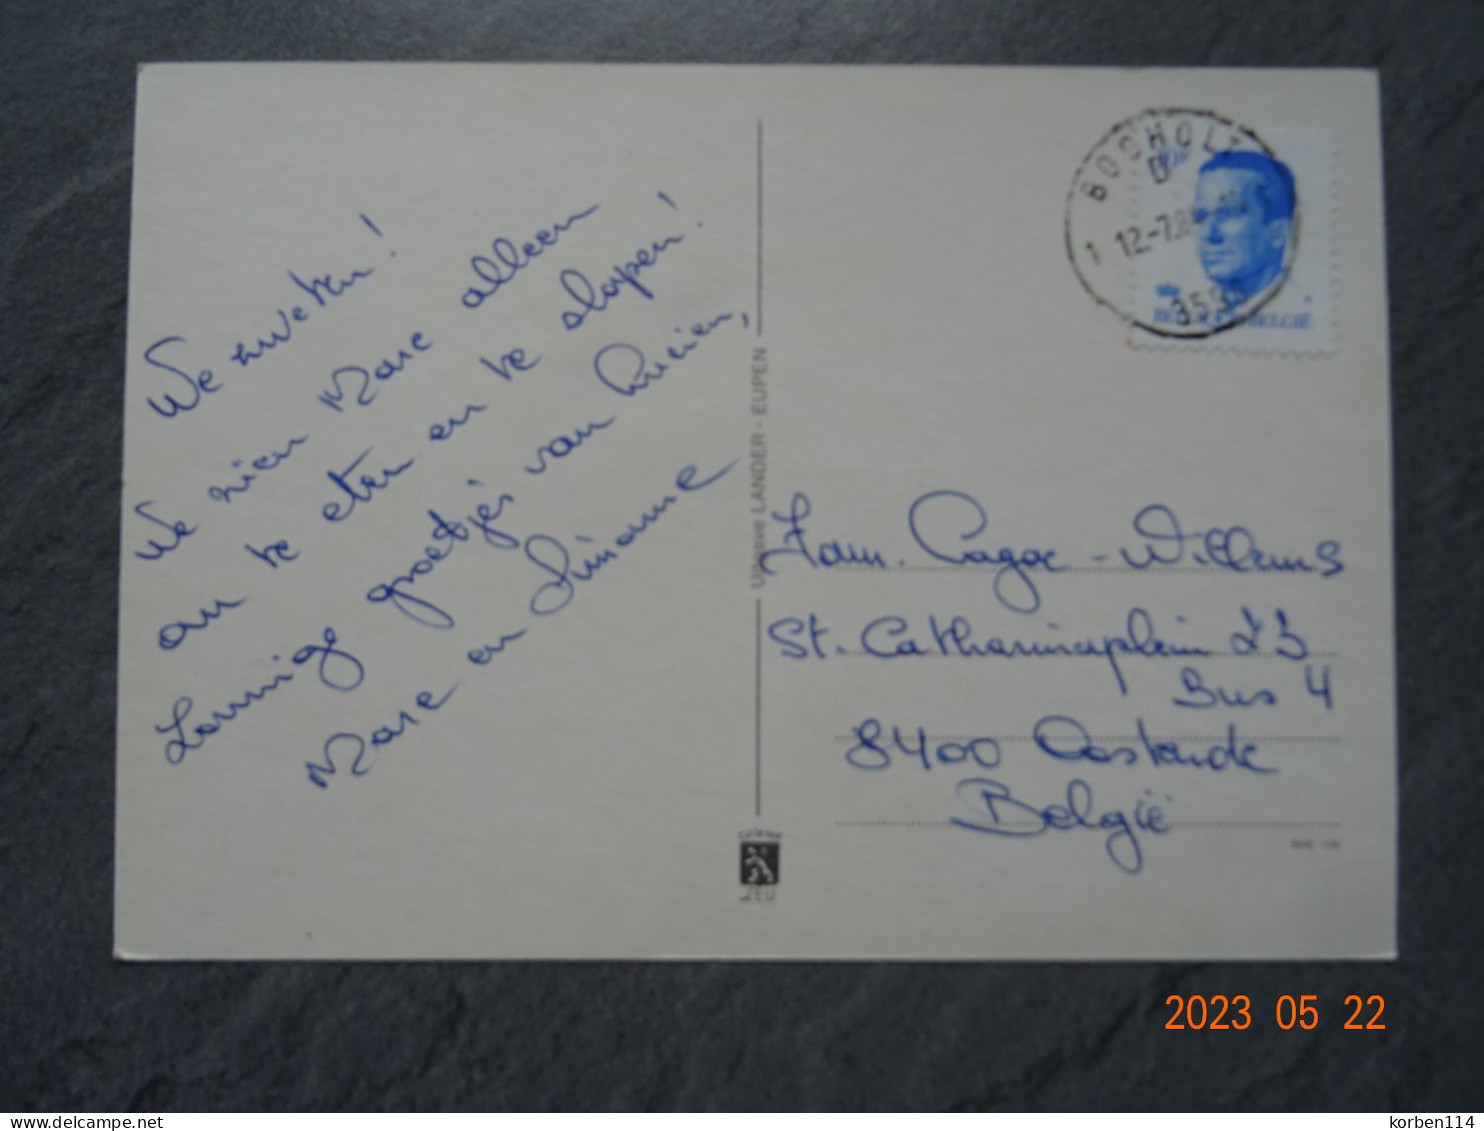 We zweten!
We zien Marc alleen
om te eten en te slapen!
Zonnige groetjes van Lucien,
Marc en Simonne
Uitgave LANDER - EUPEN
BOCHOLT
1 12-7
3595
BELGIË
Fam. Cagoe - Willems
St. Catharinaplein 23
Bus 4
8400 Oostende
België
2023 05 22
delcampe.net
korben114